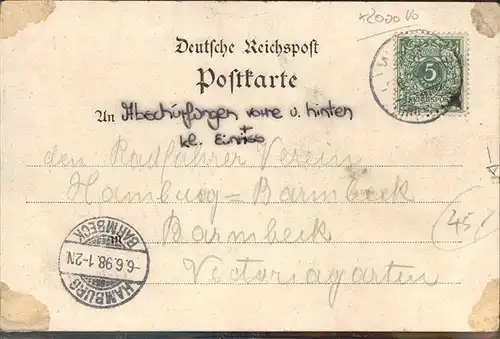 x2000 Vo
Deutsche Reichspost
Postkarte
5
REICHSPOST
An Abschürfungen vorne u. hinten
+
kl. Einriss
den Radfahrer Verein
Hamburg = Barmbeck
in Barmbeck
Victoriagarten
45,
HAMBURG
6.6.98.1-2N
BARMBECK